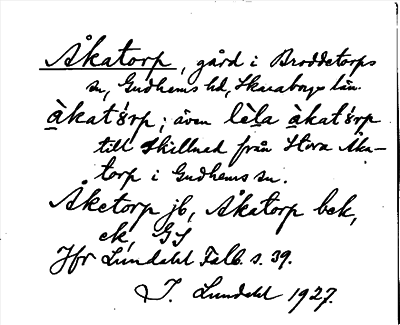 Åkatorp, gård i Broddetorps
sn, Gudhems hd, Skaraborgs län.
àkatórp; även lèla àkatórp
till skillnad från Stora Åka-
torp i Gudhems sn.
Åketorp jb, Åkatorp bek,
ek, GS
Jfr Lundahl Falb. s. 39.
I. Lundahl 1927.